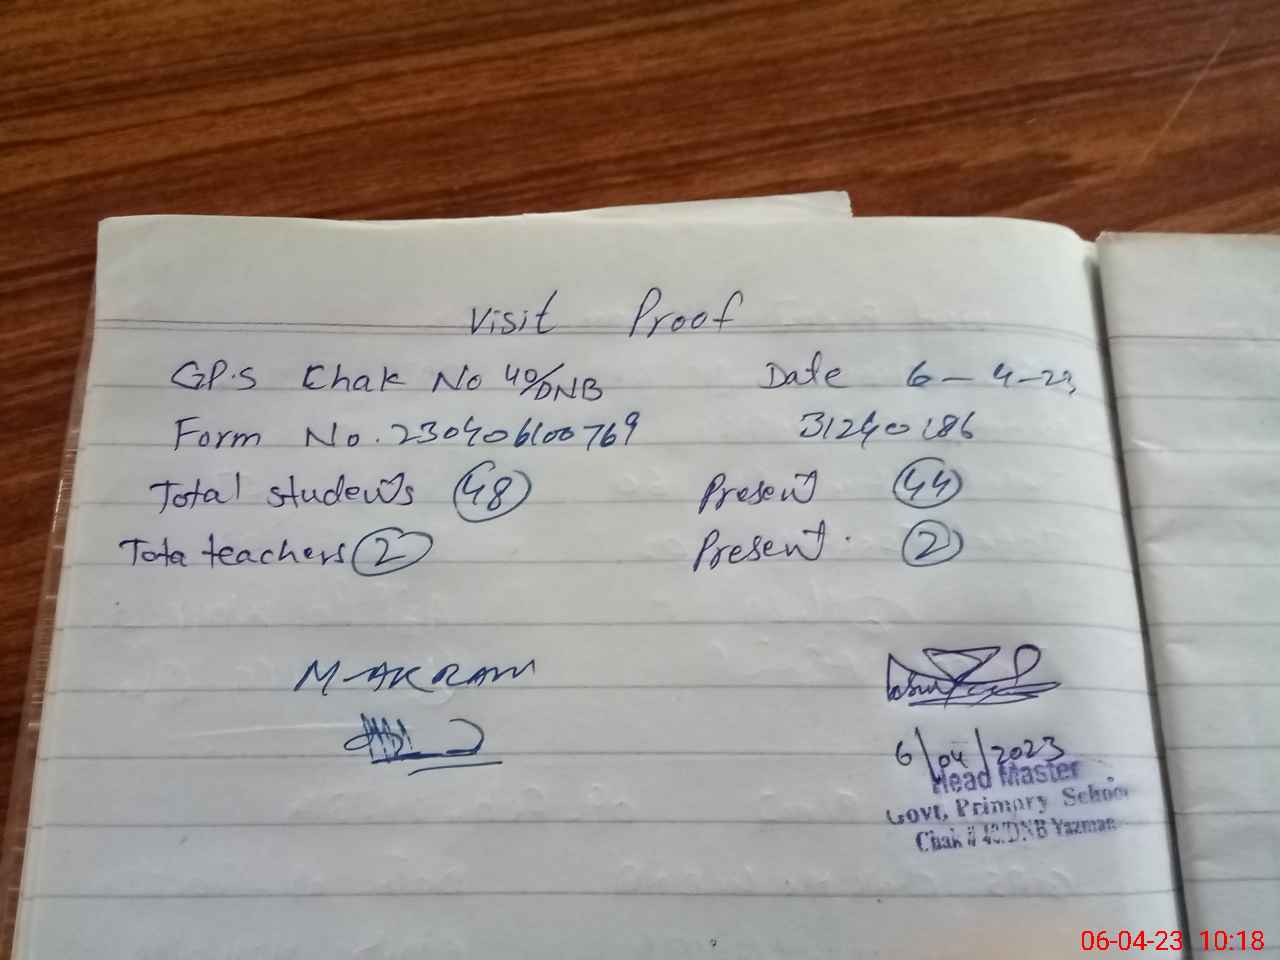 Visit Proof
GP.S Chak No 40/DNB Date 6-4-23
Form No. 230406100769 31240186
Total students 48 Present 44
Tota teachers 2 Present. 2
M-AKRAM
6/04/2023
Head Master
Govt. Primary School
Chak # 40/DNB Yazman
06-04-23 10:18